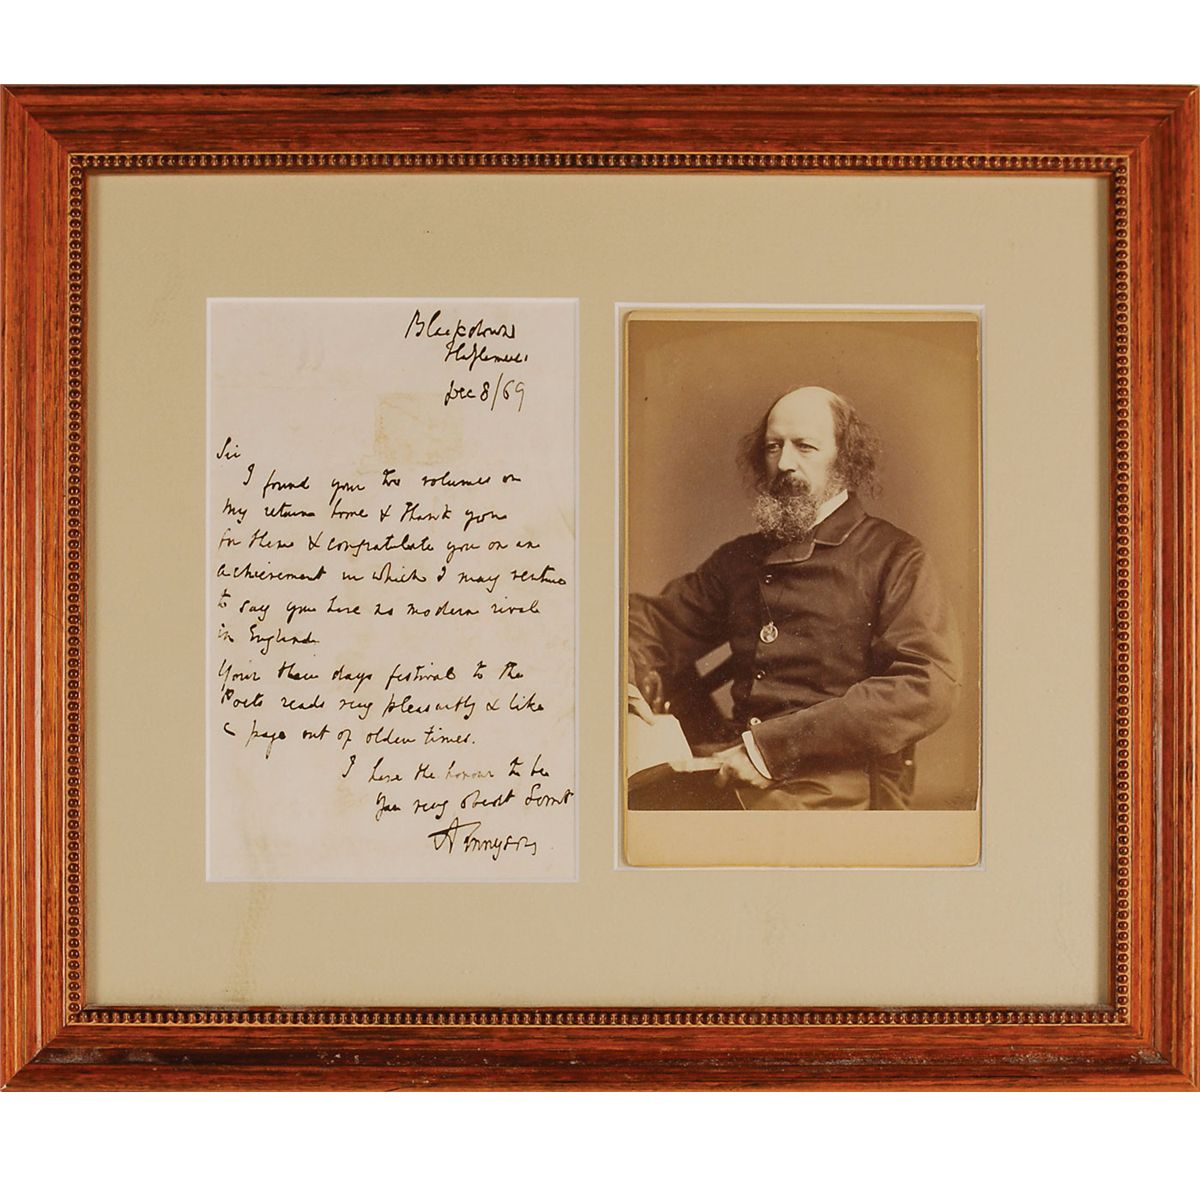 Blackdown
Haslemere
Dec 8/69
Sir
I found your two volumes on
my return home & thank you
for them & congratulate you on an
achievement in which I may venture
to say you have no modern rival
in England.
Your three days festival to the
Poets reads very pleasantly & like
a page out of olden times.
I have the honour to be
your very obedt Servt
A Tennyson